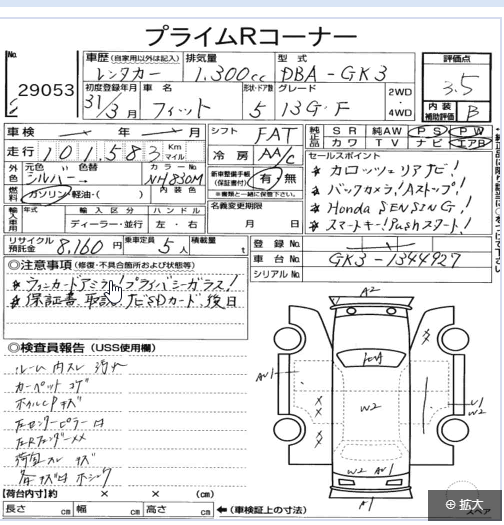 プライムRコーナー
No.
29053
車歴(自家用以外は記入)
レンタカー
排気量
1.300cc
型式
DBA-GK3
評価点
3.5
初度登録年月
31/3月
車名
フィット
形状・ドア数
5
グレード
13G・F
2WD
・
4WD
内装
補助評価
B
車検
年 月
シフト
FAT
純正品
SR 純AW PS PW
カワ TV ナビ エアB
走行
101,583
Km
マイル
冷房
AA/C
セールスポイント
* カロッツェリアナビ!
* バックカメラ!Aストップ!
* Honda SENSING!
* スマートキー!Pushスタート!
外色
元色 色替
シルバー→
カラーNo.
NH830M
内装色
新車整備手帳
(保証書付)
有・無
燃料
ガソリン・軽油・( )
名義変更期限
月 日
輸入車用
年式
輸入区分
ディーラー・並行
ハンドル
左・右
リサイクル
預託金
8,160円
乗車定員
5人
積載量
t
登録No.
車台No.
GK3-1344927
シリアルNo.
◎注意事項(修復・不具合箇所および状態等)
* プライバシーガラス!
* 保証書 取説 ナビSDカード 後日
◎検査員報告(USS使用欄)
ルーム内スレ 汚れ
カーペット コゲ
ホイルCPキズ
荷室スレ キズ
A2
AU1
W2
W2 AU1
【荷台内寸】約 × × (cm)
長さ cm 幅 cm 高さ cm ←(車検証上の寸法)
スペア
拡大